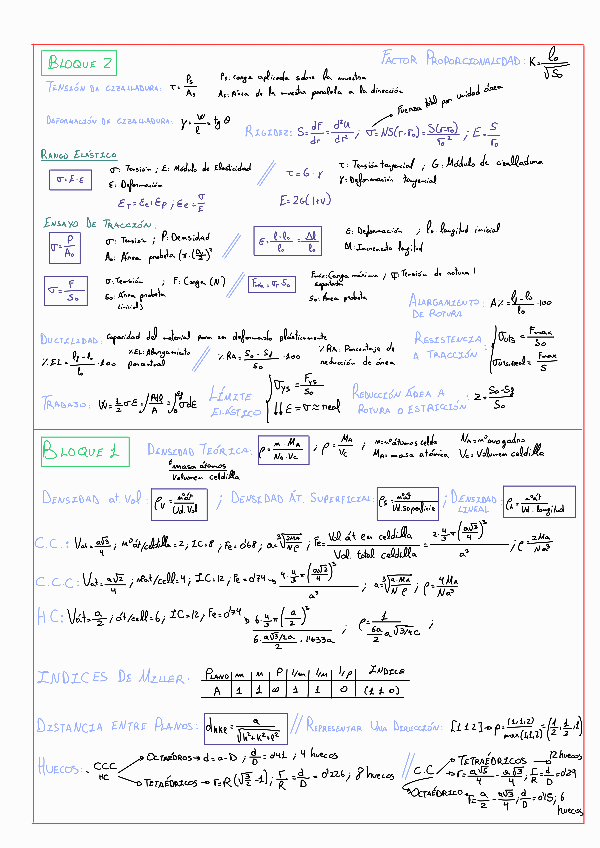 BLOQUE 2
FACTOR PROPORCIONALIDAD: K = l₀/√S₀
TENSIÓN DE CIZALLADURA: τ = Ps/As
Ps: Carga aplicada sobre la muestra
As: Área de la muestra paralela a la dirección
DEFORMACIÓN DE CIZALLADURA: γ = w/l = tg θ
Fuerza total por unidad área
RIGIDEZ: S = dF/dr = d²U/dr² ; σ = NS(r-r₀) = S(r-r₀)/r₀² ; E = S/r₀
RANGO ELÁSTICO
σ = E·ε
σ: Tensión ; E: Módulo de Elasticidad
ε: Deformación
τ = G·γ
τ: Tensión tangencial ; G: Módulo de cizalladura
γ: Deformación tangencial
εT = εe + εp ; εe = σ/E
E = 2G(1+ν)
ENSAYO DE TRACCIÓN:
σ = P/A₀
σ: Tensión ; P: Densidad
A₀: Área probeta
ε = l-l₀/l₀ = Δl/l₀
ε: Deformación ; l₀ longitud inicial
Δl: Incremento longitud
σ = F/S₀
σ: Tensión ; F: Carga (N)
S₀: Área probeta inicial
Fmáx = σr·S₀
Fmáx: Carga máxima soportada ; σr: Tensión de rotura
S₀: Área probeta
ALARGAMIENTO DE ROTURA: A% = lf-l₀/l₀ · 100
DUCTILIDAD: Capacidad del material para ser deformado plásticamente
%EL = lf-l₀/l₀ · 100
%EL: Alargamiento porcentual
%RA = S₀-Sf/S₀ · 100
%RA: Porcentaje de reducción de área
RESISTENCIA A TRACCIÓN: σuts = Fmax/S₀
σuts,real = Fmax/S
TRABAJO: W = 1/2 σE
LÍMITE ELÁSTICO σys = Fys/S₀
REDUCCIÓN ÁREA A ROTURA O ESTRICCIÓN: Z = S₀-Sf/S₀
BLOQUE 1
DENSIDAD TEÓRICA: ρ = n·MA/N₀·Vc ; ρ = MA/Vc ; n = nº átomos celda
NA = nº avogadro
MA = masa atómica
Vc = Volumen celdilla
masa átomos
Volumen celdilla
DENSIDAD at. Vol: ρv = nºat/Ud.Vol ; DENSIDAD ÁT. SUPERFICIAL: ρs = nºat/Ud.superficie ; DENSIDAD LINEAL: ρL = nºát/Ud. longitud
C.C.: Vat = a√3/4 ; nºat/celdilla = 2 ; IC = 8 ; Fe = 0'68 ; a = ³√2MA/Nρ ; Fe = Vol át en celdilla/Vol. total celdilla = 2·4/3π(a√3/4)³/a³ ; ρ = 2MA/Na³
C.C.C: Vat = a√2/4 ; nºat/cell = 4 ; IC = 12 ; Fe = 0'74 → 4·4/3π(a√2/4)³/a³ ; ρ = 4MA/Na³
HC: Vát = a/2 ; át/cell = 6 ; IC = 12 ; Fe = 0'74
INDICES DE MILLER:
PLANO m n P 1/m 1/n 1/p ÍNDICE
A 1 1 ∞ 1 1 0 (110)
DISTANCIA ENTRE PLANOS: dhkl = a/√h²+k²+l² // REPRESENTAR UNA DIRECCIÓN: [112] → ρ = (1,1,2)/max(1,1,2) = (1/2, 1/2, 1)
HUECOS: CCC HC
OCTAÉDROS → d = a-D ; d/D = 0'41 ; 4 huecos
TETAÉDRICOS → r = R(√3/2 - 1) ; r/R = d/D = 0'226 ; 8 huecos
C.C
TETRAÉDRICOS 12 huecos
r = a√5/4 - a√3/4 ; r/R = d/D = 0'29
OCTAÉDRICO r = a/2 - a√3/4 ; d/D = 0'15 ; 6 huecos